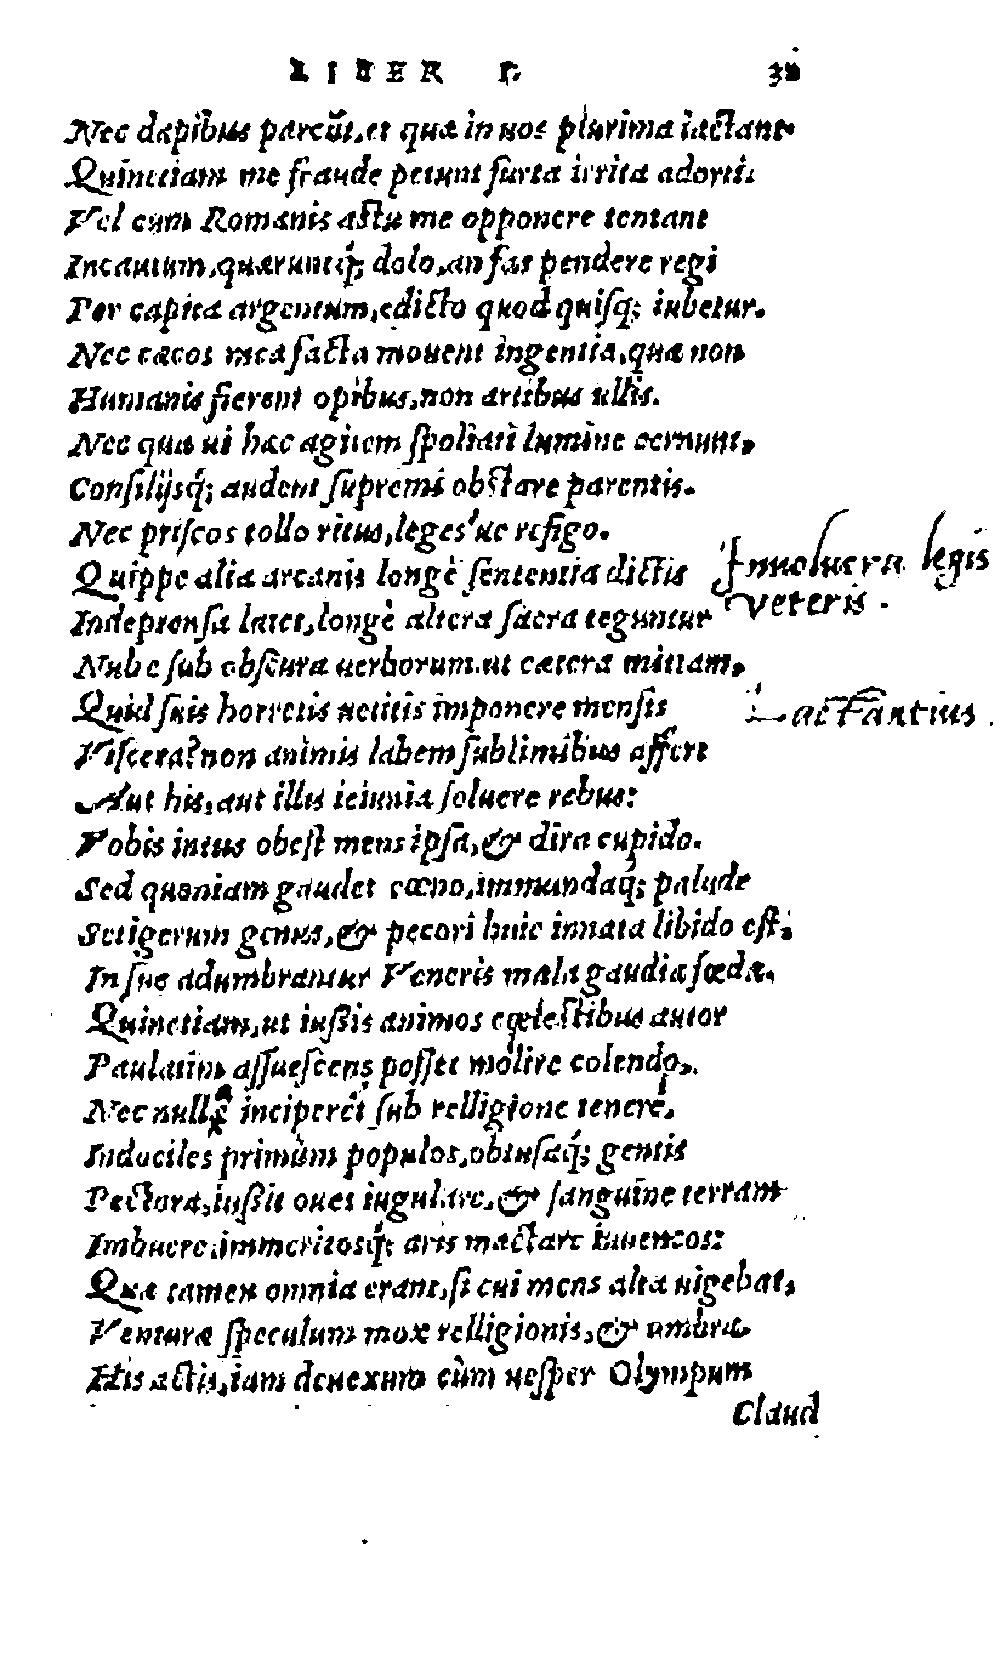 LIBER I.
Nec dapibus parcũt, et quæ in nos plurima iactant.
Quinetiam me fraude petunt furta irrita adorti:
Vel cum Romanis astu me opponere tentant
Incautum, quæruntq́; dolo, an fas pendere regi
Per capita argentum, edicto quod quisq; iubetur.
Nec cæcos mea facta mouent ingentia, quæ non
Humanis fierent opibus, non artibus ullis.
Nec quæ ui hac agitem spoliati lumine cernunt,
Consilijsq́; audent supremi obstare parentis.
Nec priscos tollo ritus, leges'ue refigo.
Quippe alia arcanis longè sententia dictis
Inuolucra legis
veteris.
Indeprensa latet, longè altera sacra teguntur
Nube sub obscura uerborum. ut cætera mittam,
Quid suis horretis uetitis imponere mensis
Lactantius.
Viscera? non animis labem sublimibus affert
Aut his, aut illis ieiunia soluere rebus:
Vobis intus obest mens ipsa, & dira cupido.
Sed quoniam gaudet cœno, immundaq́; palude
Setigerum genus, & pecori huic innata libido est;
In sue adumbrantur Veneris mala gaudia fœdæ.
Quinetiam, ut iußis animos cœlestibus autor
Paulatim assuescens posset mollire colendo,
Nec nulla inciperet sub relligione tenere,
Indociles primùm populos, obtusaq́; gentis
Pectora, iußit oues iugulare, & sanguine terram
Imbuere, immeritosq́; aris mactare iuuencos:
Quæ tamen omnia erant, si cui mens alta uigebat,
Venturæ speculum mox relligionis, & umbra.
His actis, iam deuexum cùm uesper Olympum
Claud